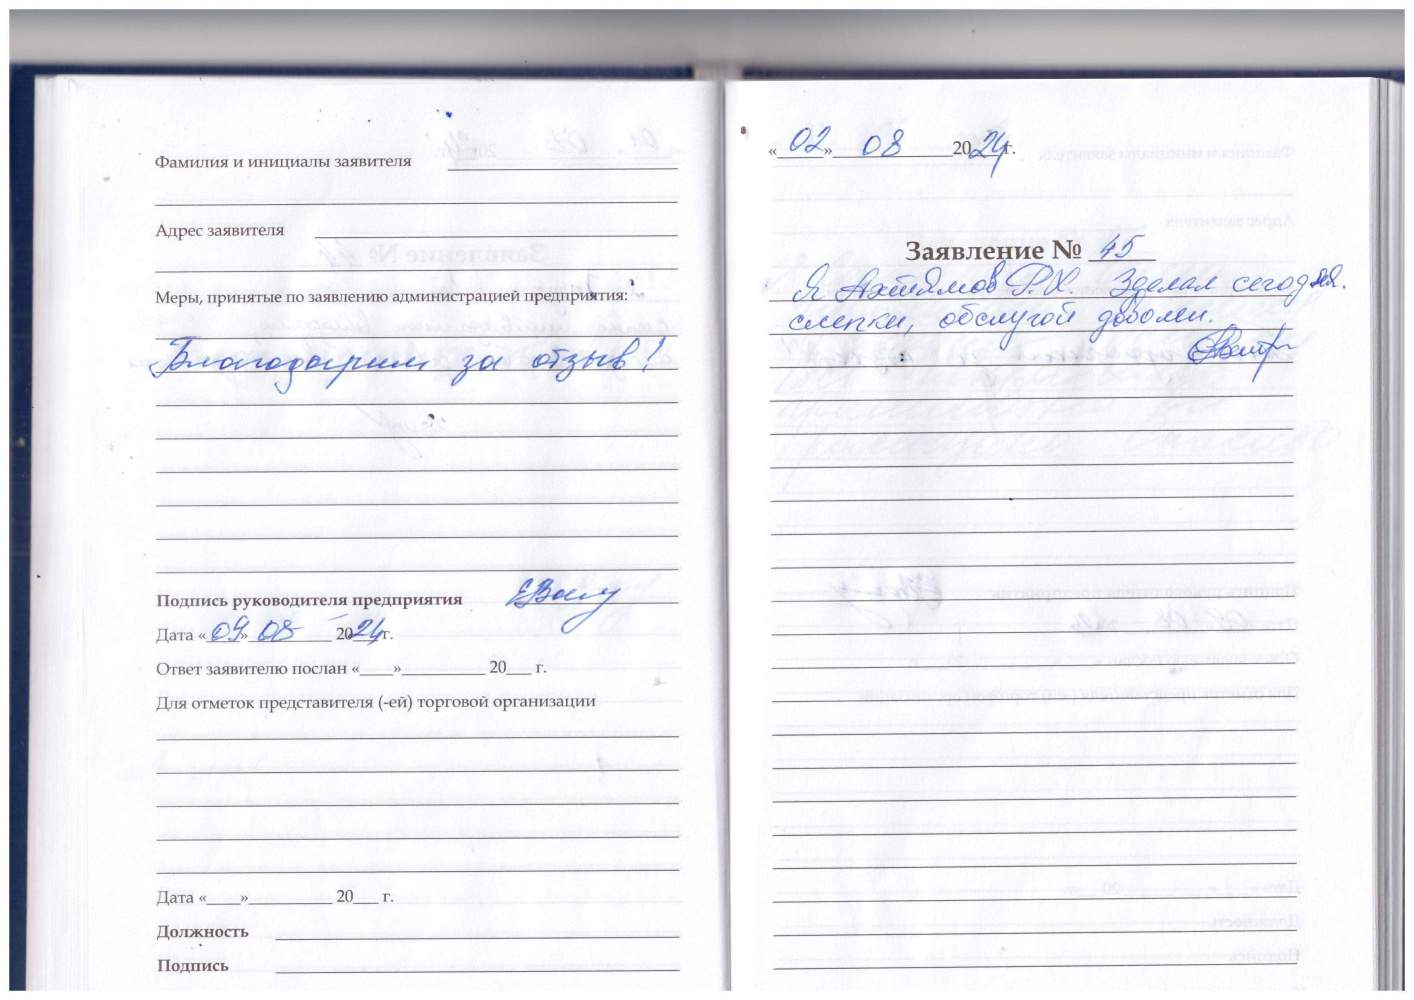 Фамилия и инициалы заявителя
Адрес заявителя
Меры, принятые по заявлению администрацией предприятия:
Благодарим за отзыв!
Подпись руководителя предприятия
Дата «09» 08 2024 г.
Ответ заявителю послан «____»__________ 20___ г.
Для отметок представителя (-ей) торговой организации
Дата «____»__________ 20___ г.
Должность
Подпись
«02» 08 2024 г.
Заявление № 45
Я Ахтямов Р.Х. Зделал сегодня.
слепки, обслугой доволен.